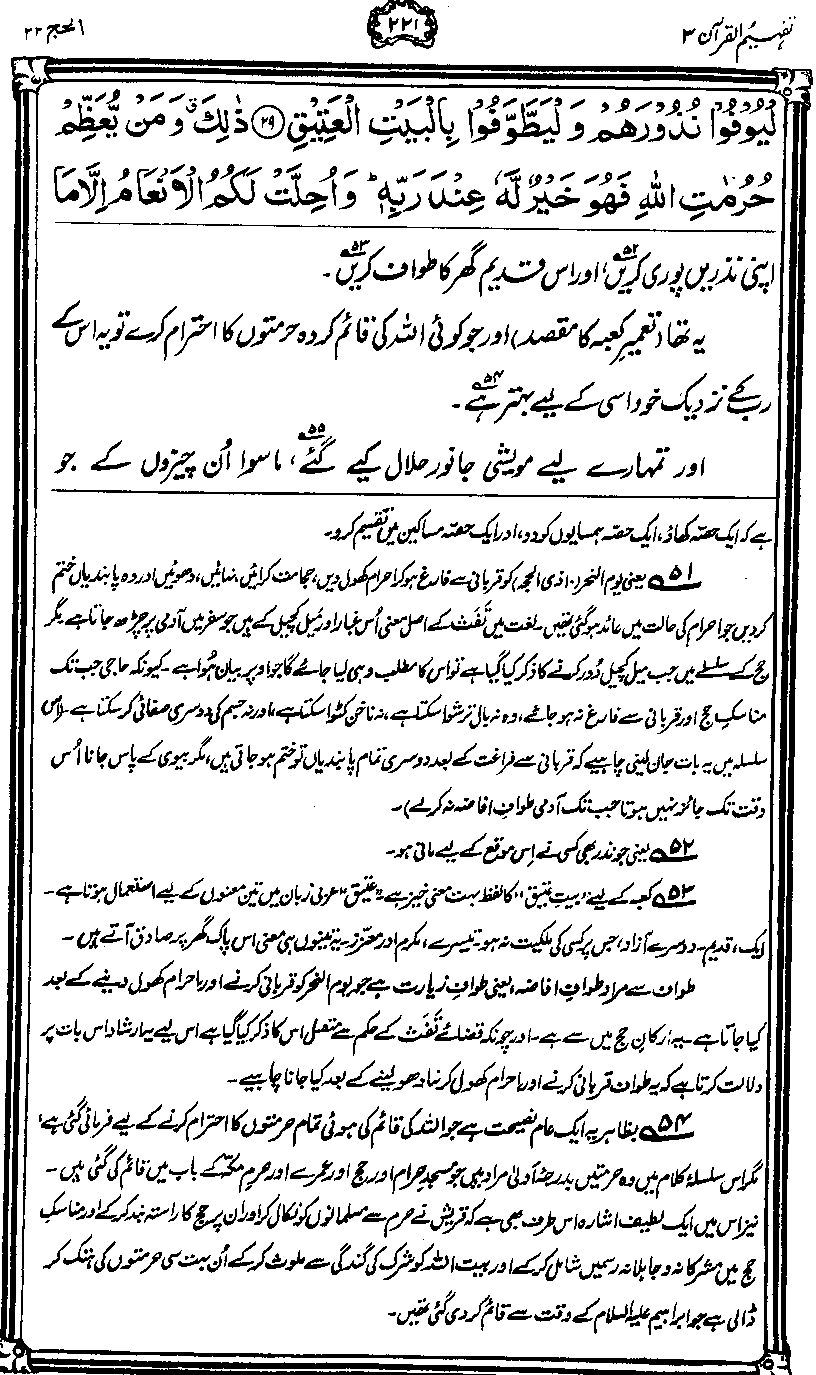 تفہیم القرآن ۳
۲۲۱
الحج ۲۲
لْيُوْفُوْا نُذُوْرَهُمْ وَلْيَطَّوَّفُوْا بِالْبَيْتِ الْعَتِيْقِ ۲۹ ذٰلِكَ ۗ وَمَنْ يُّعَظِّمْ
حُرُمٰتِ اللهِ فَهُوَ خَيْرٌ لَّهٗ عِنْدَ رَبِّهٖ ؕ وَاُحِلَّتْ لَكُمُ الْاَنْعَامُ اِلَّا مَا
اپنی نذریں پوری کریں۵۲، اور اس قدیم گھر کا طواف کریں۵۳۔
یہ تھا (تعمیرِ کعبہ کا مقصد) اور جو کوئی اللہ کی قائم کردہ حرمتوں کا احترام کرے تو یہ اس کے
رب کے نزدیک خود اسی کے لیے بہتر ہے۵۴۔
اور تمہارے لیے مویشی جانور حلال کیے گئے۵۵، ماسوا اُن چیزوں کے جو
ہے کہ ایک حصّہ کھاؤ، ایک حصّہ ہمسایوں کو دو، اور ایک حصّہ مساکین میں تقسیم کرو۔
۵۱ یعنی یوم النحر (۱۰ ذی الحجہ) کو قربانی سے فارغ ہو کر احرام کھول دیں، حجامت کرائیں، نہائیں، دھوئیں اور وہ پابندیاں ختم
کر دیں جو احرام کی حالت میں عائد ہو گئی تھیں۔ لغت میں تَفَث کے اصل معنی اُس غبار اور میل کچیل کے ہیں جو سفر میں آدمی پر چڑھ جاتا ہے۔ مگر
حج کے سلسلے میں جب میل کچیل دُور کرنے کا ذکر کیا گیا ہے تو اس کا مطلب وہی لیا جائے گا جو اوپر بیان ہُوا ہے۔ کیونکہ حاجی جب تک
مناسکِ حج اور قربانی سے فارغ نہ ہو جائے، وہ نہ بال ترشوا سکتا ہے، نہ ناخن کٹوا سکتا ہے، اور نہ جسم کی دوسری صفائی کر سکتا ہے۔ (اس
سلسلہ میں یہ بات جان لینی چاہیے کہ قربانی سے فراغت کے بعد دوسری تمام پابندیاں تو ختم ہو جاتی ہیں، مگر بیوی کے پاس جانا اُس
وقت تک جائز نہیں ہوتا جب تک آدمی طوافِ افاضہ نہ کر لے)۔
۵۲ یعنی جو نذر بھی کسی نے اِس موقع کے لیے مانی ہو۔
۵۳ کعبہ کے لیے "بیتِ عتیق" کا لفظ بہت معنی خیز ہے۔ "عتیق" عربی زبان میں تین معنوں کے لیے استعمال ہوتا ہے۔
ایک، قدیم۔ دوسرے آزاد، جس پر کسی کی ملکیت نہ ہو۔ تیسرے، مکرم اور معزز۔ یہ تینوں ہی معنی اس پاک گھر پر صادق آتے ہیں۔
طواف سے مراد طوافِ افاضہ، یعنی طوافِ زیارت ہے جو یوم النحر کو قربانی کرنے اور احرام کھول دینے کے بعد
کیا جاتا ہے۔ یہ ارکانِ حج میں سے ہے۔ اور چونکہ قضائے تَفَث کے حکم سے متصل اس کا ذکر کیا گیا ہے اس لیے یہ ارشاد اس بات پر
دلالت کرتا ہے کہ یہ طواف قربانی کرنے اور احرام کھول کر نہا دھو لینے کے بعد کیا جانا چاہیے۔
۵۴ بظاہر یہ ایک عام نصیحت ہے جو اللہ کی قائم کی ہوئی تمام حرمتوں کا احترام کرنے کے لیے فرمائی گئی ہے،
مگر اس سلسلۂ کلام میں وہ حرمتیں بدرجۂ اَولیٰ مراد ہیں جو مسجدِ حرام اور حج اور عمرے اور حرمِ مکہ کے باب میں قائم کی گئی ہیں۔
نیز اس میں ایک لطیف اشارہ اس طرف بھی ہے کہ قریش نے حرم سے مسلمانوں کو نکال کر اور ان پر حج کا راستہ بند کر کے اور مناسکِ
حج میں مشرکانہ و جاہلانہ رسمیں شامل کر کے اور بیت اللہ کو شرک کی گندگی سے ملوث کر کے اُن بہت سی حرمتوں کی ہتک کر
ڈالی ہے جو ابراہیم علیہ السلام کے وقت سے قائم کر دی گئی تھیں۔